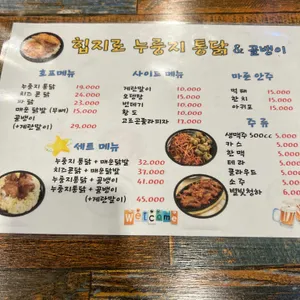 칩지로 누룽지 통닭 & 골뱅이
호프메뉴
누룽지 통닭 19,000
치즈 콘 닭 24,000
파 닭 23,000
매운 닭발 (뼈째) 15,000
골뱅이
(+계란말이) 29,000
사이드 메뉴
계란말이 10,000
오뎅탕 15,000
번데기 10,000
황도 10,000
고르곤졸라피자 13,000
마른 안주
먹태 15,000
한치 15,000
아귀포 15,000
세트 메뉴
누룽지 통닭 + 매운닭발 32,000
치즈콘닭 + 매운닭발 37,000
누룽지통닭 + 골뱅이 41,000
누룽지콘닭 + 골뱅이
(+계란말이) 45,000
주류
생맥주 500cc 5,000
카스 5,000
한맥 5,000
테라 5,000
클라우드 5,000
소주 5,000
welcome